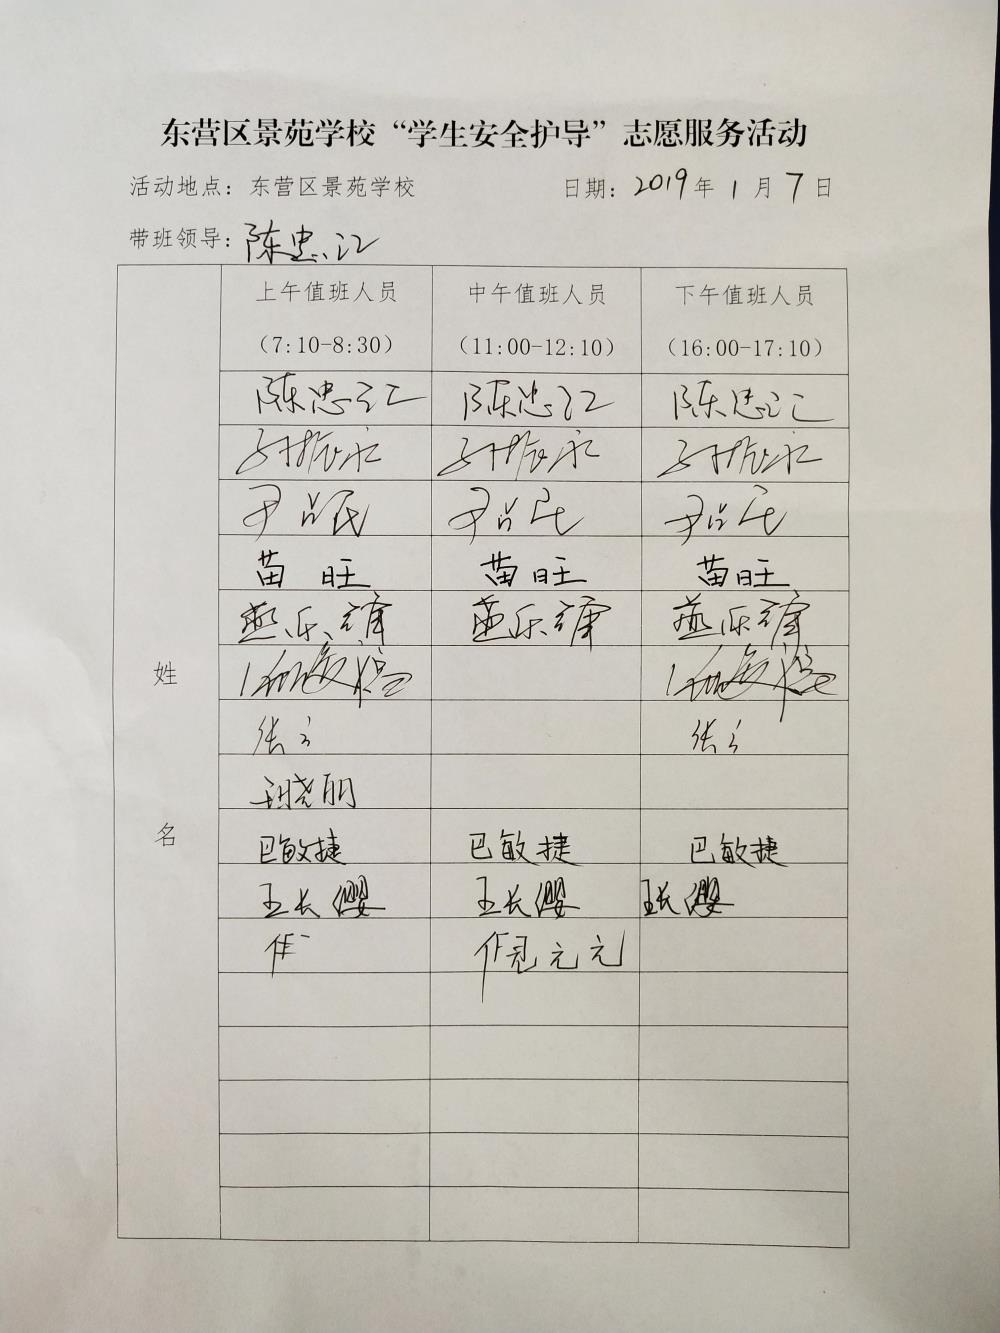 东营区景苑学校“学生安全护导”志愿服务活动
活动地点：东营区景苑学校 日期：2019年1月7日
带班领导：陈忠江
上午值班人员 中午值班人员 下午值班人员
（7:10-8:30） （11:00-12:10） （16:00-17:10）
陈忠江 陈忠江 陈忠江
孙振永 孙振永 孙振永
尹占民 尹占民 尹占民
苗旺 苗旺 苗旺
燕乐 燕乐 燕乐
姓
张 张
晓丽
名
巴敏捷 巴敏捷 巴敏捷
王长缨 王长缨 王长缨
元元